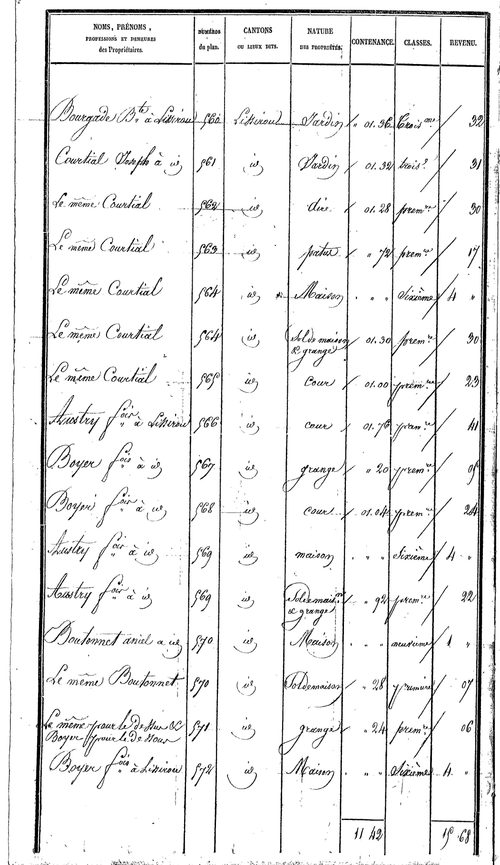 NOMS, PRÉNOMS, PROFESSIONS ET DEMEURES des Propriétaires. NUMÉROS du plan. CANTONS OU LIEUX DITS. NATURE DES PROPRIÉTÉS. CONTENANCE. CLASSES. REVENU.
Bourgade Bte à Lissirou 560 Lissirou Jardin " 01.36 trois me / 32
Courtial Joseph à id 561 id Jardin / 01.32 trois e / 31
Le même Courtial 562 id aire / 01.28 prem re / 30
Le même Courtial 563 id patus / " 72 prem re / 17
Le même Courtial 564 id Maison / " " Sixième / 4 "
Le même Courtial 564 id Sol de maison & grange / 01.30 prem re / 30
Le même Courtial 565 id cour / 01.00 prem re / 23
Austry fois à Lissirou 566 id cour / 01.76 prem re / 41
Boyer fois à id 567 id grange / " 20 prem re / 05
Boyer fois à id 568 id cour / 01.04 prem re / 24
Austry fois à id 569 id maison " " " Sixième / 4 "
Austry fois à id 569 id Sol de maison & grange " 92 prem re / 22
Boutonnet à id 570 id Maison " " " / 1 "
Le même Boutonnet 570 id Sol de maison / " 28 première / 07
Le même pour le dessus &
Boyer pour le dessous 571 id grange / " 24 prem re / 06
Boyer fois à Lissirou 572 id Maison " " " Sixième / 4 "
11 42 15 68